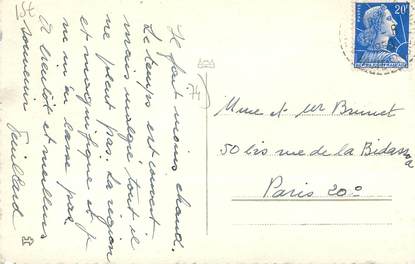 Il fait moins chaud.
Le temps est couvert
mais malgré tout il
ne pleut pas. La région
est magnifique et je
ne m'en lasse pas.
A bientôt et meilleurs
souvenir
Mme et Mr Brunet
50 bis rue de la Bidassoa
Paris 20e
POSTES
20F